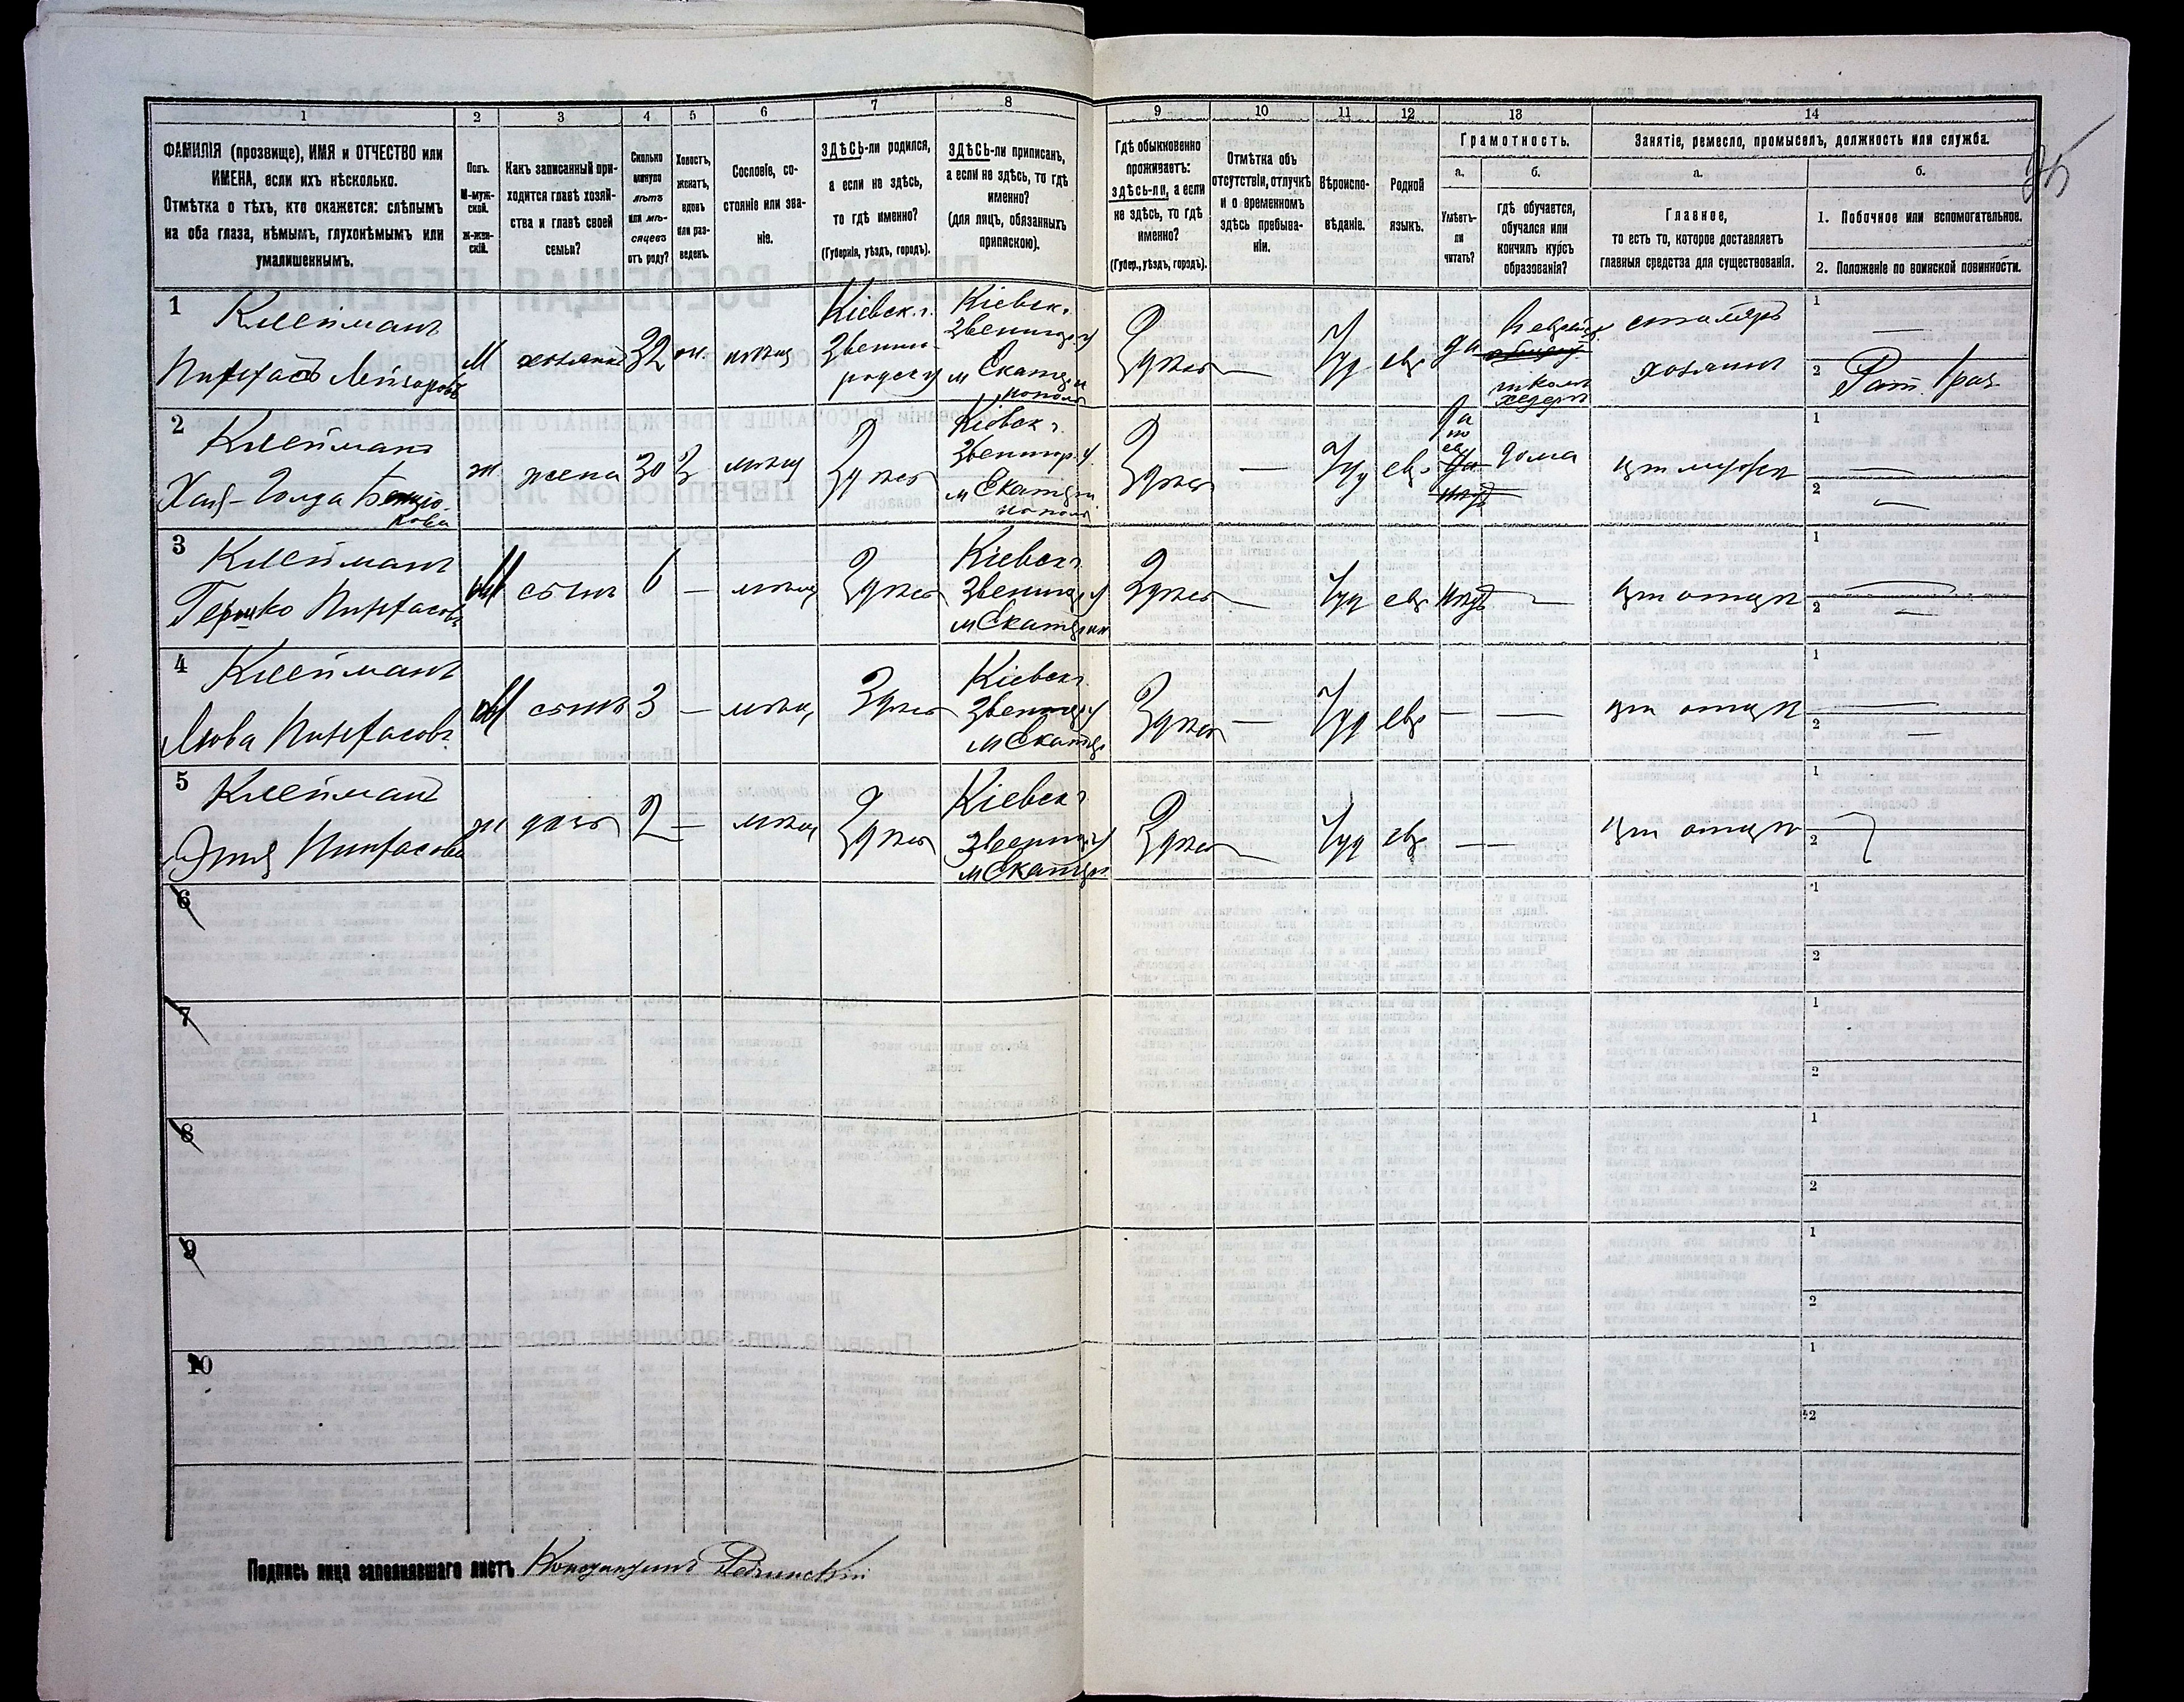 1 2 3 4 5 6 7 8 9 10 11 12 13 14
ФАМИЛІЯ (прозвище), ИМЯ и ОТЧЕСТВО или
ИМЕНА, если ихъ нѣсколько.
Отмѣтка о тѣхъ, кто окажется: слѣпымъ
на оба глаза, нѣмымъ, глухонѣмымъ или
умалишеннымъ.
Полъ.
М-муж-
ской.
Ж-жен-
скій.
Какъ записанный при-
ходится главѣ хозяй-
ства и главѣ своей
семьи?
Сколько
минуло
лѣтъ
или мѣ-
сяцевъ
отъ роду?
Холостъ,
женатъ,
вдовъ
или раз-
веденъ.
Сословіе, со-
стояніе или зва-
ніе.
ЗДѢСЬ-ли родился,
а если не здѣсь,
то гдѣ именно?
(Губернія, уѣздъ, городъ).
ЗДѢСЬ-ли приписанъ,
а если не здѣсь, то гдѣ
именно?
(для лицъ, обязанныхъ
припискою).
Гдѣ обыкновенно
проживаетъ:
здѣсь-ли, а если
не здѣсь, то гдѣ
именно?
(Губер., уѣздъ, городъ).
Отмѣтка объ
отсутствіи, отлучкѣ
и о временномъ
здѣсь пребыва-
ніи.
Вѣроиспо-
вѣданіе.
Родной
языкъ.
Грамотность.
а.
Умѣетъ-
ли
читать?
б.
гдѣ обучается,
обучался или
кончилъ курсъ
образованія?
Занятіе, ремесло, промыселъ, должность или служба.
а.
Главное,
то есть то, которое доставляетъ
главныя средства для существованія.
б.
1. Побочное или вспомогательное.
2. Положеніе по воинской повинности.
95
1
Клейманъ
Пинхасъ Лейзоровъ
М
хозяинъ
32
жн.
мѣщ
Кіевск. г.
Звени-
родск у
Кіевск.
Звениг. у
м Екатери
нополя
Здѣсь
—
Іуд
евр
да
школѣ
хедеръ
столяръ
хозяинъ
1 —
2
2
Клейманъ
Хая-Голда
ж
жена
30
З
мѣщ
Здѣсь
Кіевск г.
Звенигор. у.
м Екатери
нополя
Здѣсь
—
Іуд
евр
да
по
евр
дома
при мужѣ
1 —
2 —
3
Клейманъ
Гершко Пинхасовъ
М
сынъ
6
—
мѣщ
Здѣсь
Кіевск г
Звениг у
м Екатерин
Здѣсь
—
Іуд
евр
нѣтъ
—
при отцѣ
1 —
2 —
4
Клейманъ
Лейба Пинхасовъ
М
сынъ
3
—
мѣщ
Здѣсь
Кіевск г.
Звениг у
м Екатер
Здѣсь
—
Іуд
евр
—
—
при отцѣ
1 —
2 —
5
Клейманъ
Этя Пинхасова
ж
дочь
2
—
мѣщ
Здѣсь
Кіевск г
Звениг у
м Екатери
Здѣсь
—
Іуд
евр
—
—
при отцѣ
1
2
6
1
2
7
1
2
8
1
2
9
1
2
10
1
2
Подпись лица заполнявшаго листъ